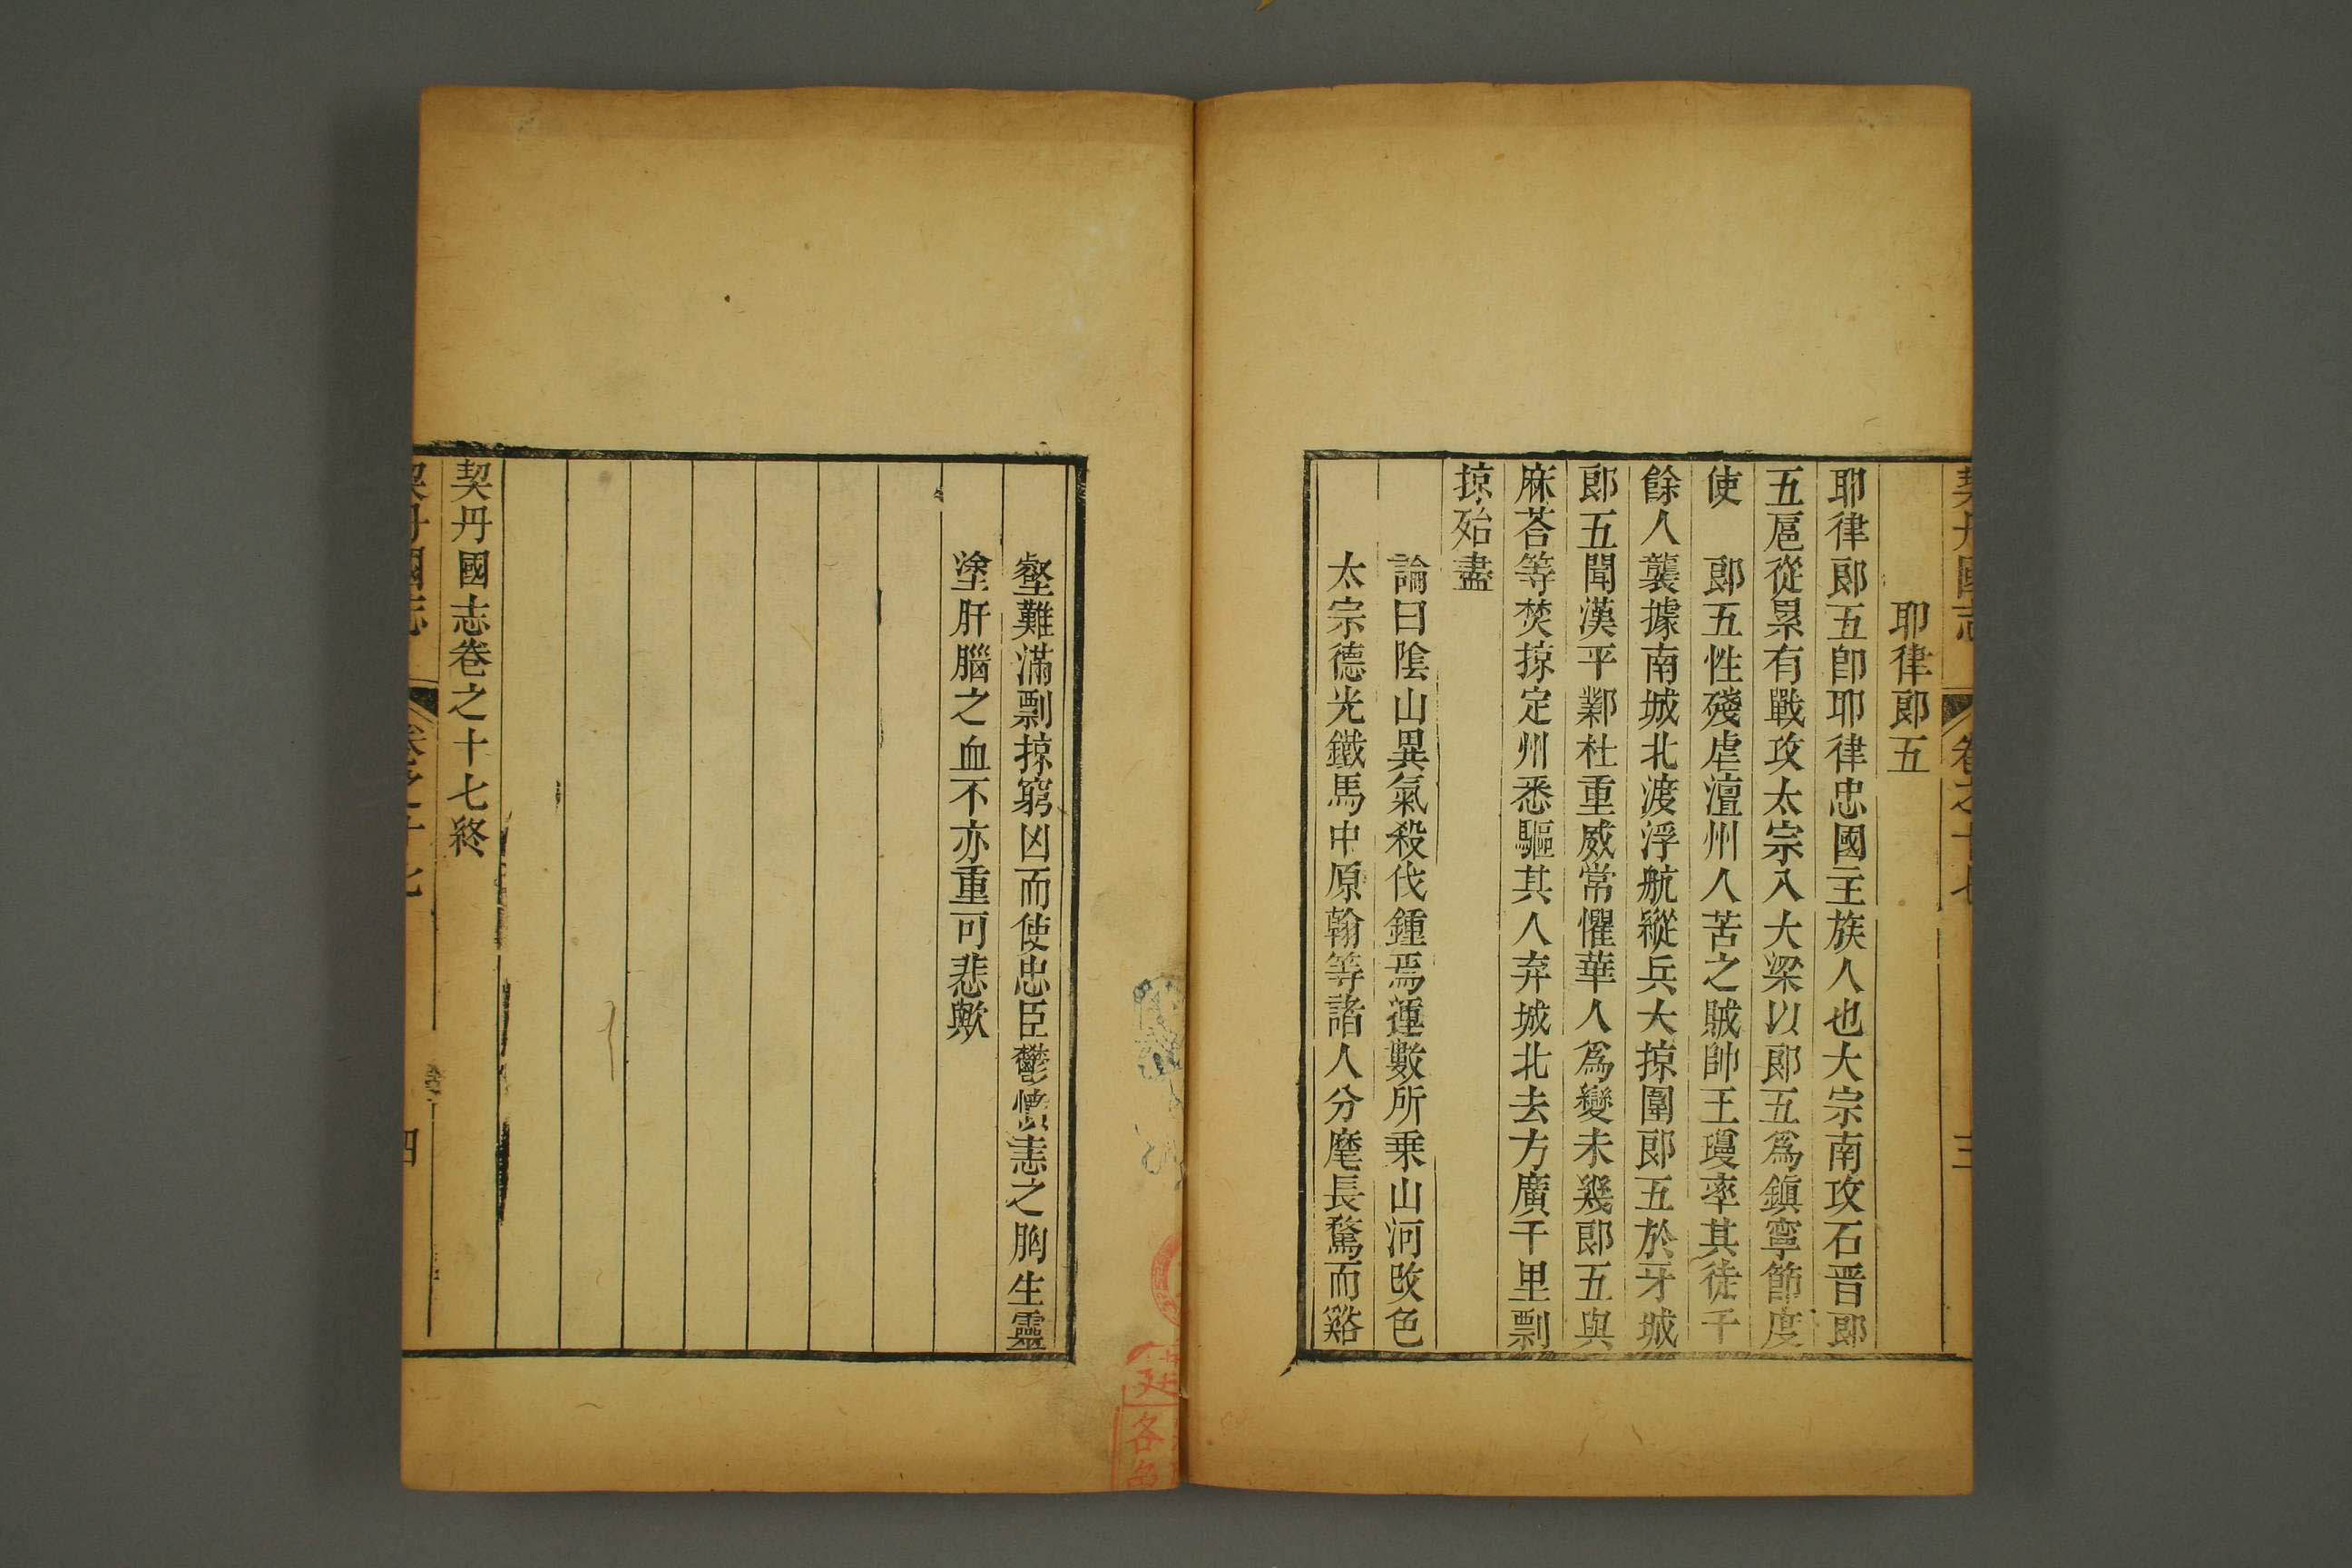 契丹國志 卷之十七 三
耶律郎五
耶律郎五卽耶律忠國主族人也大宗南攻石晋郎
五扈從累有戰攻太宗入大梁以郎五爲鎮寧節度
使 郎五性殘虐澶州人苦之賊帥王瓊率其徒千
餘人襲據南城北渡浮航縱兵大掠圍郎五於牙城
郎五聞漢平鄴杜重威常懼華人爲變未幾郎五與
麻荅等焚掠定州悉驅其人弃城北去方廣千里剽
掠殆盡
論曰陰山異氣殺伐鍾焉運數所乗山河改色
太宗德光鐵馬中原翰等諸人分麾長騖而谿
壑難滿剽掠窮凶而使忠臣鬱憤恚之胸生靈
塗肝腦之血不亦重可悲歟
契丹國志卷之十七終
契丹國志 卷之十七 四